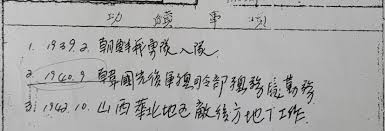 功績事項
1. 1939.2. 朝鮮義勇隊入隊.
2. 1940.9. 韓國光復軍總司令部總務處勤務
3. 1942.10. 山西華北地區敵後方地下工作.